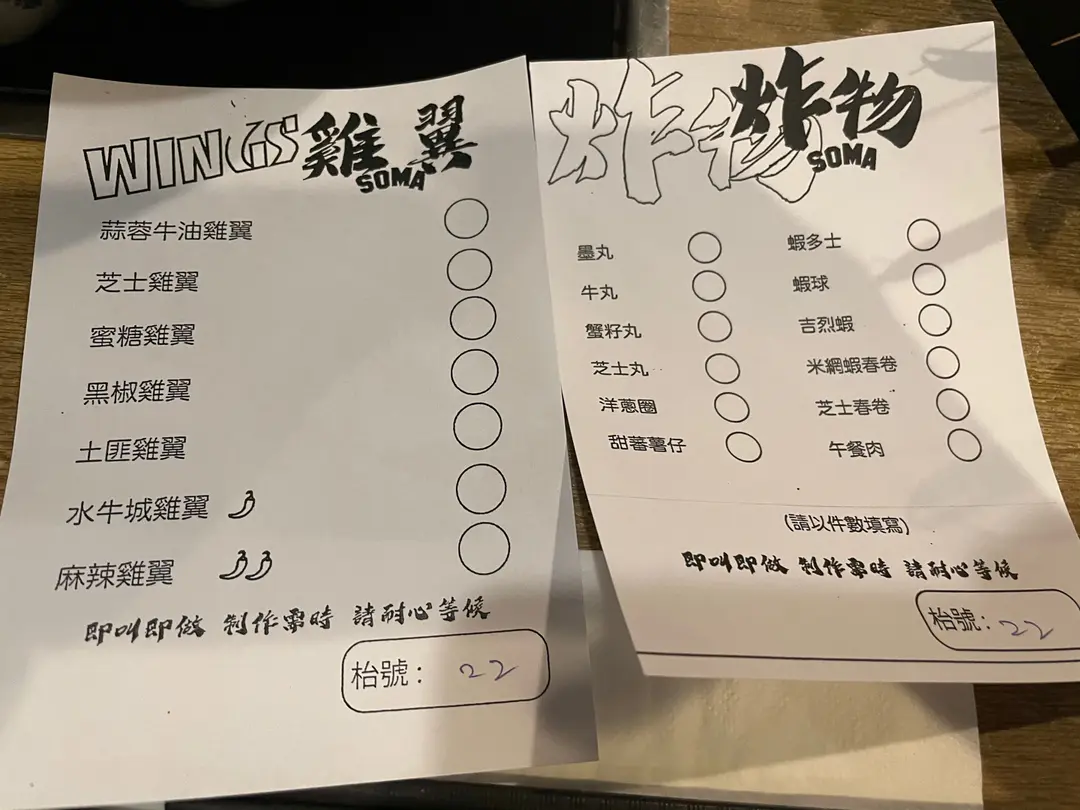 WINGS 雞翼
SOMA
蒜蓉牛油雞翼
芝士雞翼
蜜糖雞翼
黑椒雞翼
土匪雞翼
水牛城雞翼
麻辣雞翼
即叫即做 制作需時 請耐心等候
枱號： 22
炸物 炸物
SOMA
墨丸
牛丸
蟹籽丸
芝士丸
洋蔥圈
甜蕃薯仔
蝦多士
蝦球
吉烈蝦
米網蝦春卷
芝士春卷
午餐肉
(請以件數填寫)
即叫即做 制作需時 請耐心等候
枱號： 22